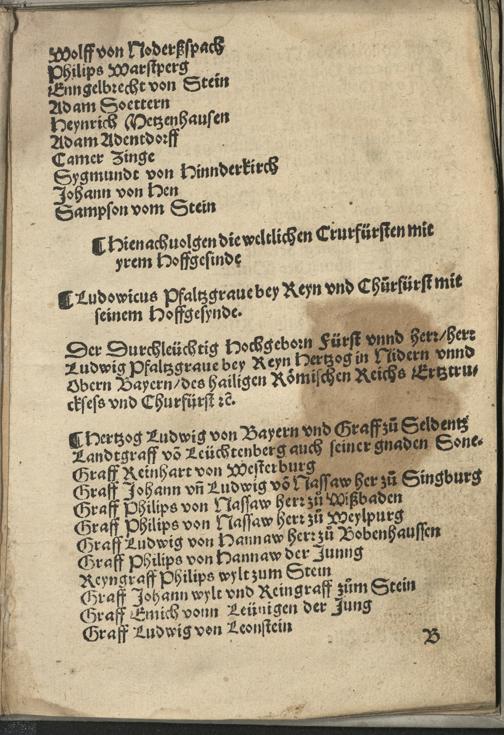 Wolff von Noderßspach
Philips Warstperg
Enngelbrecht von Stein
Adam Soettern
Heynrich Metzenhausen
Adam Adentdorff
Camer Zinge
Sygmundt von Hinnderkirch
Johann von Hen
Sampson vom Stein
¶ Hienachuolgen die weltlichen Crurfürsten mit
yrem Hoffgesinde
¶ Ludowicus Pfaltzgraue bey Reyn vnd Chürfürst mit
seinem Hoffgesynde.
Der Durchleüchtig Hochgeborn Fürst vnnd herr/herr
Ludwig Pfaltzgraue bey Reyn Hertzog in Nidern vnnd
Obern Bayern/des hailigen Römischen Reichs Ertztru-
cksess vnd Churfürst ꝛc̄.
¶ Hertzog Ludwig von Bayern vnd Graff zů Seldentz
Landtgraff vō Leüchtenberg auch seiner gnaden Sone-
Graff Reinhart von Westerburg
Graff Johann vn̄ Ludwig vō Nassaw her zů Singburg
Graff Philips von Nassaw herr zů Wißbaden
Graff Philips von Nassaw herr zů Weylpurg
Graff Ludwig von Hannaw herr zů Bobenhaussen
Graff Philips von Hannaw der Junng
Reyngraff Philips wylt zum Stein
Graff Johann wylt vnd Reingraff zům Stein
Graff Emich vonn Leünigen der Jung
Graff Ludwig von Leonstein
B